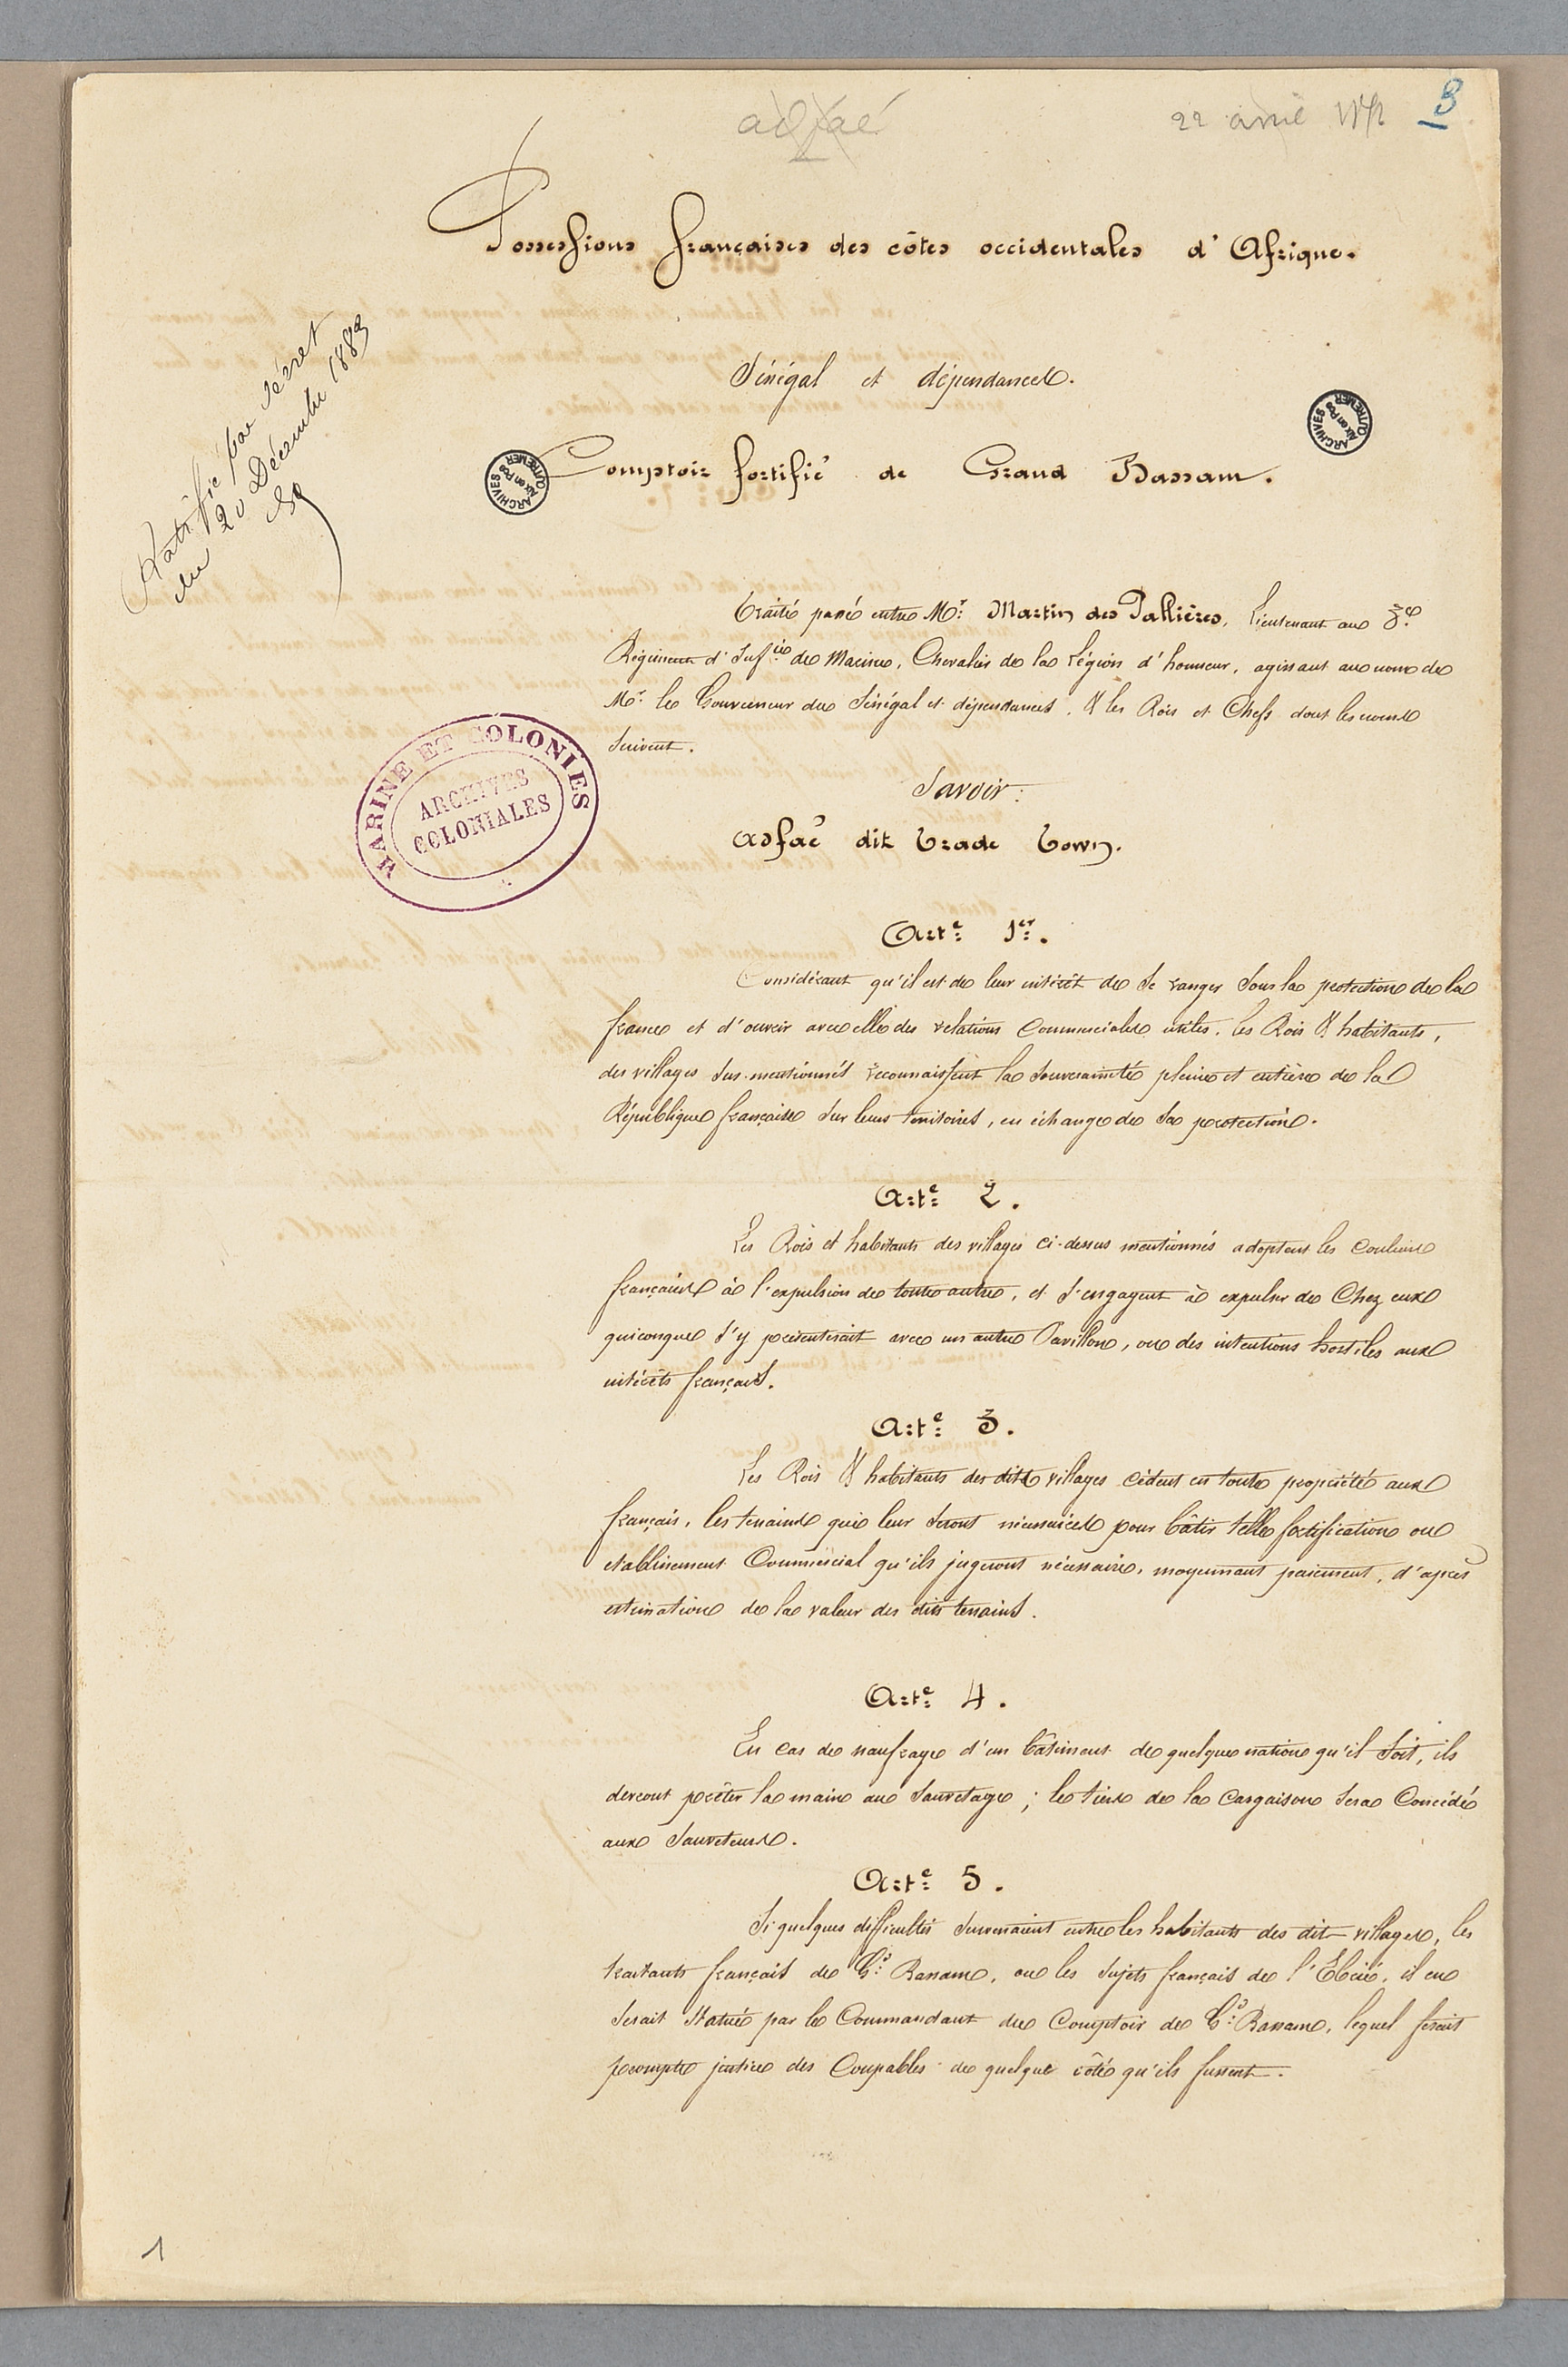 adjaé
22 avril
3
Possessions françaises des côtes occidentales d'Afrique.
Ratifié par décret
du 20 Décembre 1883
Sénégal et dépendances.
Comptoir fortifié de Grand Bassam.
ARCHIVES
OUTREMER
Aix en Pce
ARCHIVES
OUTREMER
Aix en Pce
Traité passé entre Mr: Martin des Pallières, Lieutenant au 3e
Régiment d'Infie de Marine, Chevalier de la Légion d'honneur, agissant au nom de
Mr. le Gouverneur du Sénégal et dépendances, & les Rois et Chefs dont les noms
suivent.
MARINE ET COLONIES
ARCHIVES
COLONIALES
Savoir:
adfaé dit Trade Town.
Arte: 1er.
Considérant qu'il est de leur intérêt de se ranger sous la protection de la
france et d'ouvrir avec elle des relations Commerciales utiles, les Rois & habitants,
des villages sus-mentionnés reconnaissent la souveraineté pleine et entière de la
République française sur leurs territoires, en échange de sa protection.
Arte: 2.
Les Rois et habitants des villages ci-dessus mentionnés adoptent les Couleurs
françaises à l'expulsion de toute autre, et s'engagent à expulser de Chez eux
quiconque s'y présenterait avec un autre Pavillon, ou des intentions hostiles aux
intérêts français.
Arte: 3.
Les Rois & habitants des dits villages cèdent en toute propriété aux
français, les terrains qui leur seront nécessaires pour bâtir telle fortification ou
etablissement Commercial qu'ils jugeront nécessaire, moyennant paiement, d'après
estimation de la valeur des dits terrains.
Arte: 4.
En cas de naufrage d'un bâtiment de quelque nation qu'il soit, ils
devront prêter la main au sauvetage; le tiers de la Cargaison sera Concédé
aux Sauveteurs.
Arte: 5.
Si quelques difficultés survenaient entre les habitants des dit villages, les
traitants français de Gd: Bassam, ou les sujets français de l'Ebrié, il en
serait statué par le Commandant du Comptoir de Gd: Bassam, lequel ferait
prompte justice des Coupables de quelque côté qu'ils fussent.
1